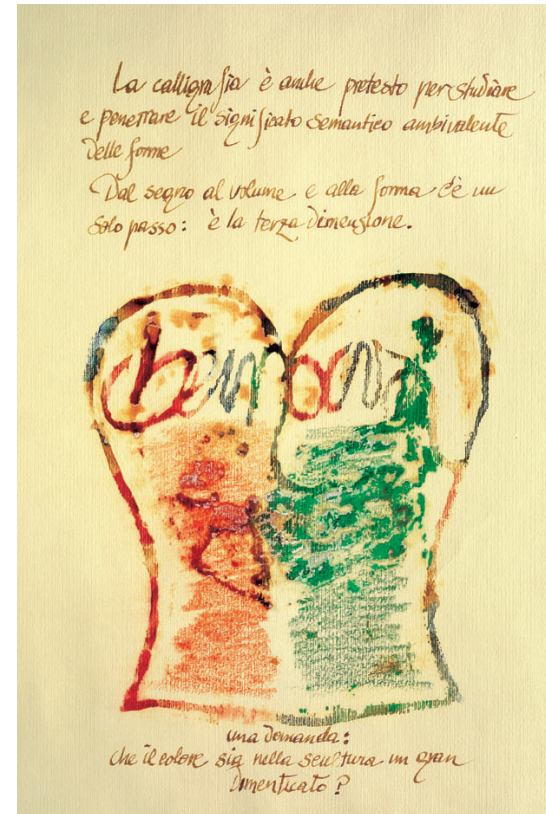 La calligrafia è anche pretesto per studiare
e penetrare il significato semantico ambivalente
delle forme
Dal segno al volume e alla forma c'è un
solo passo: è la terza dimensione.
una domanda:
che il colore sia nella scultura un gran
dimenticato?